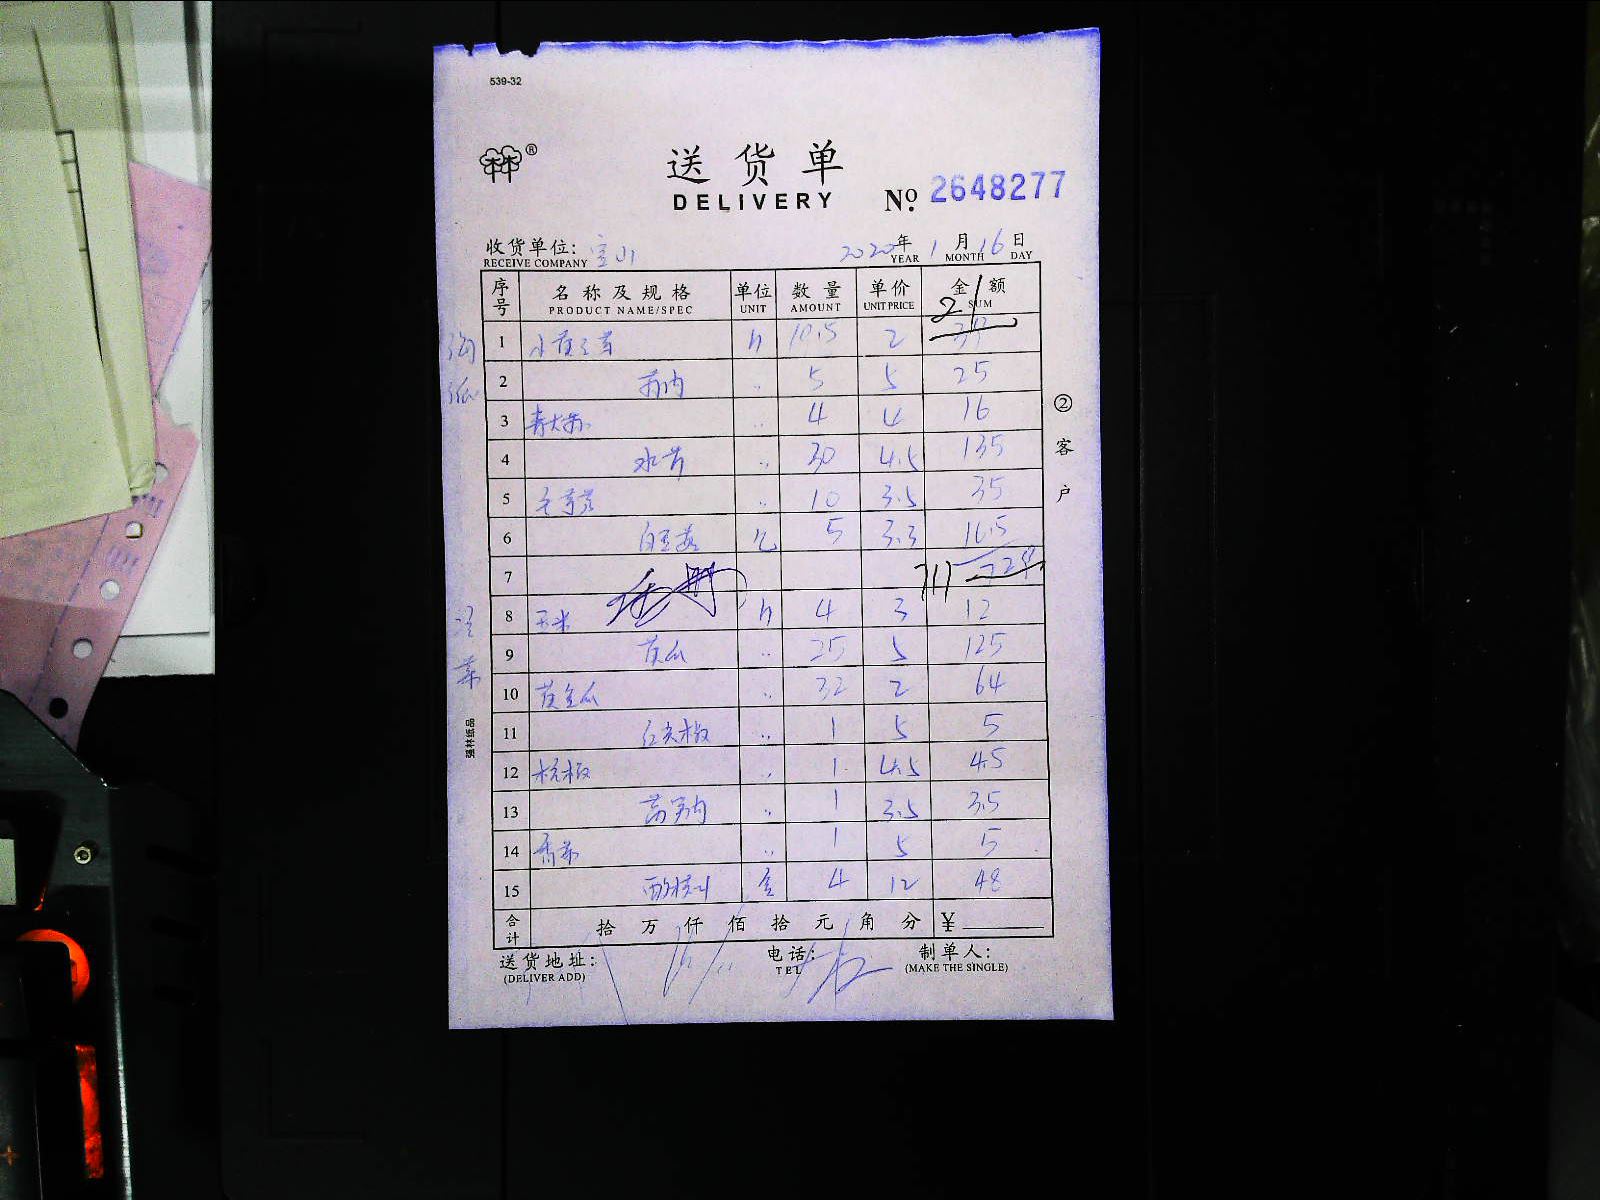 539-32
送货单
DELIVERY
No. 2648277
收货单位: 宝山
RECEIVE COMPANY
2020年 1月 16日
YEAR MONTH DAY
序号 名称及规格 单位 数量 单价 金额
PRODUCT NAME/SPEC UNIT AMOUNT UNIT PRICE SUM
21
1 10.5 2
2 5 5 25
3 4 4 16
4 水芹 30 4.5 135
5 10 3.5 35
6 5 3.3 16.5
7 711 724
8 玉米 4 3 12
9 黄瓜 25 5 125
10 黄金瓜 32 2 64
11 红尖椒 1 5 5
12 杭椒 1 4.5 4.5
13 1 3.5 3.5
14 香菜 1 5 5
15 盒 4 12 48
合计 拾万仟佰拾元角分 ¥
送货地址: 电话: 制单人:
(DELIVER ADD) TEL (MAKE THE SINGLE)
②客户
强林纸品